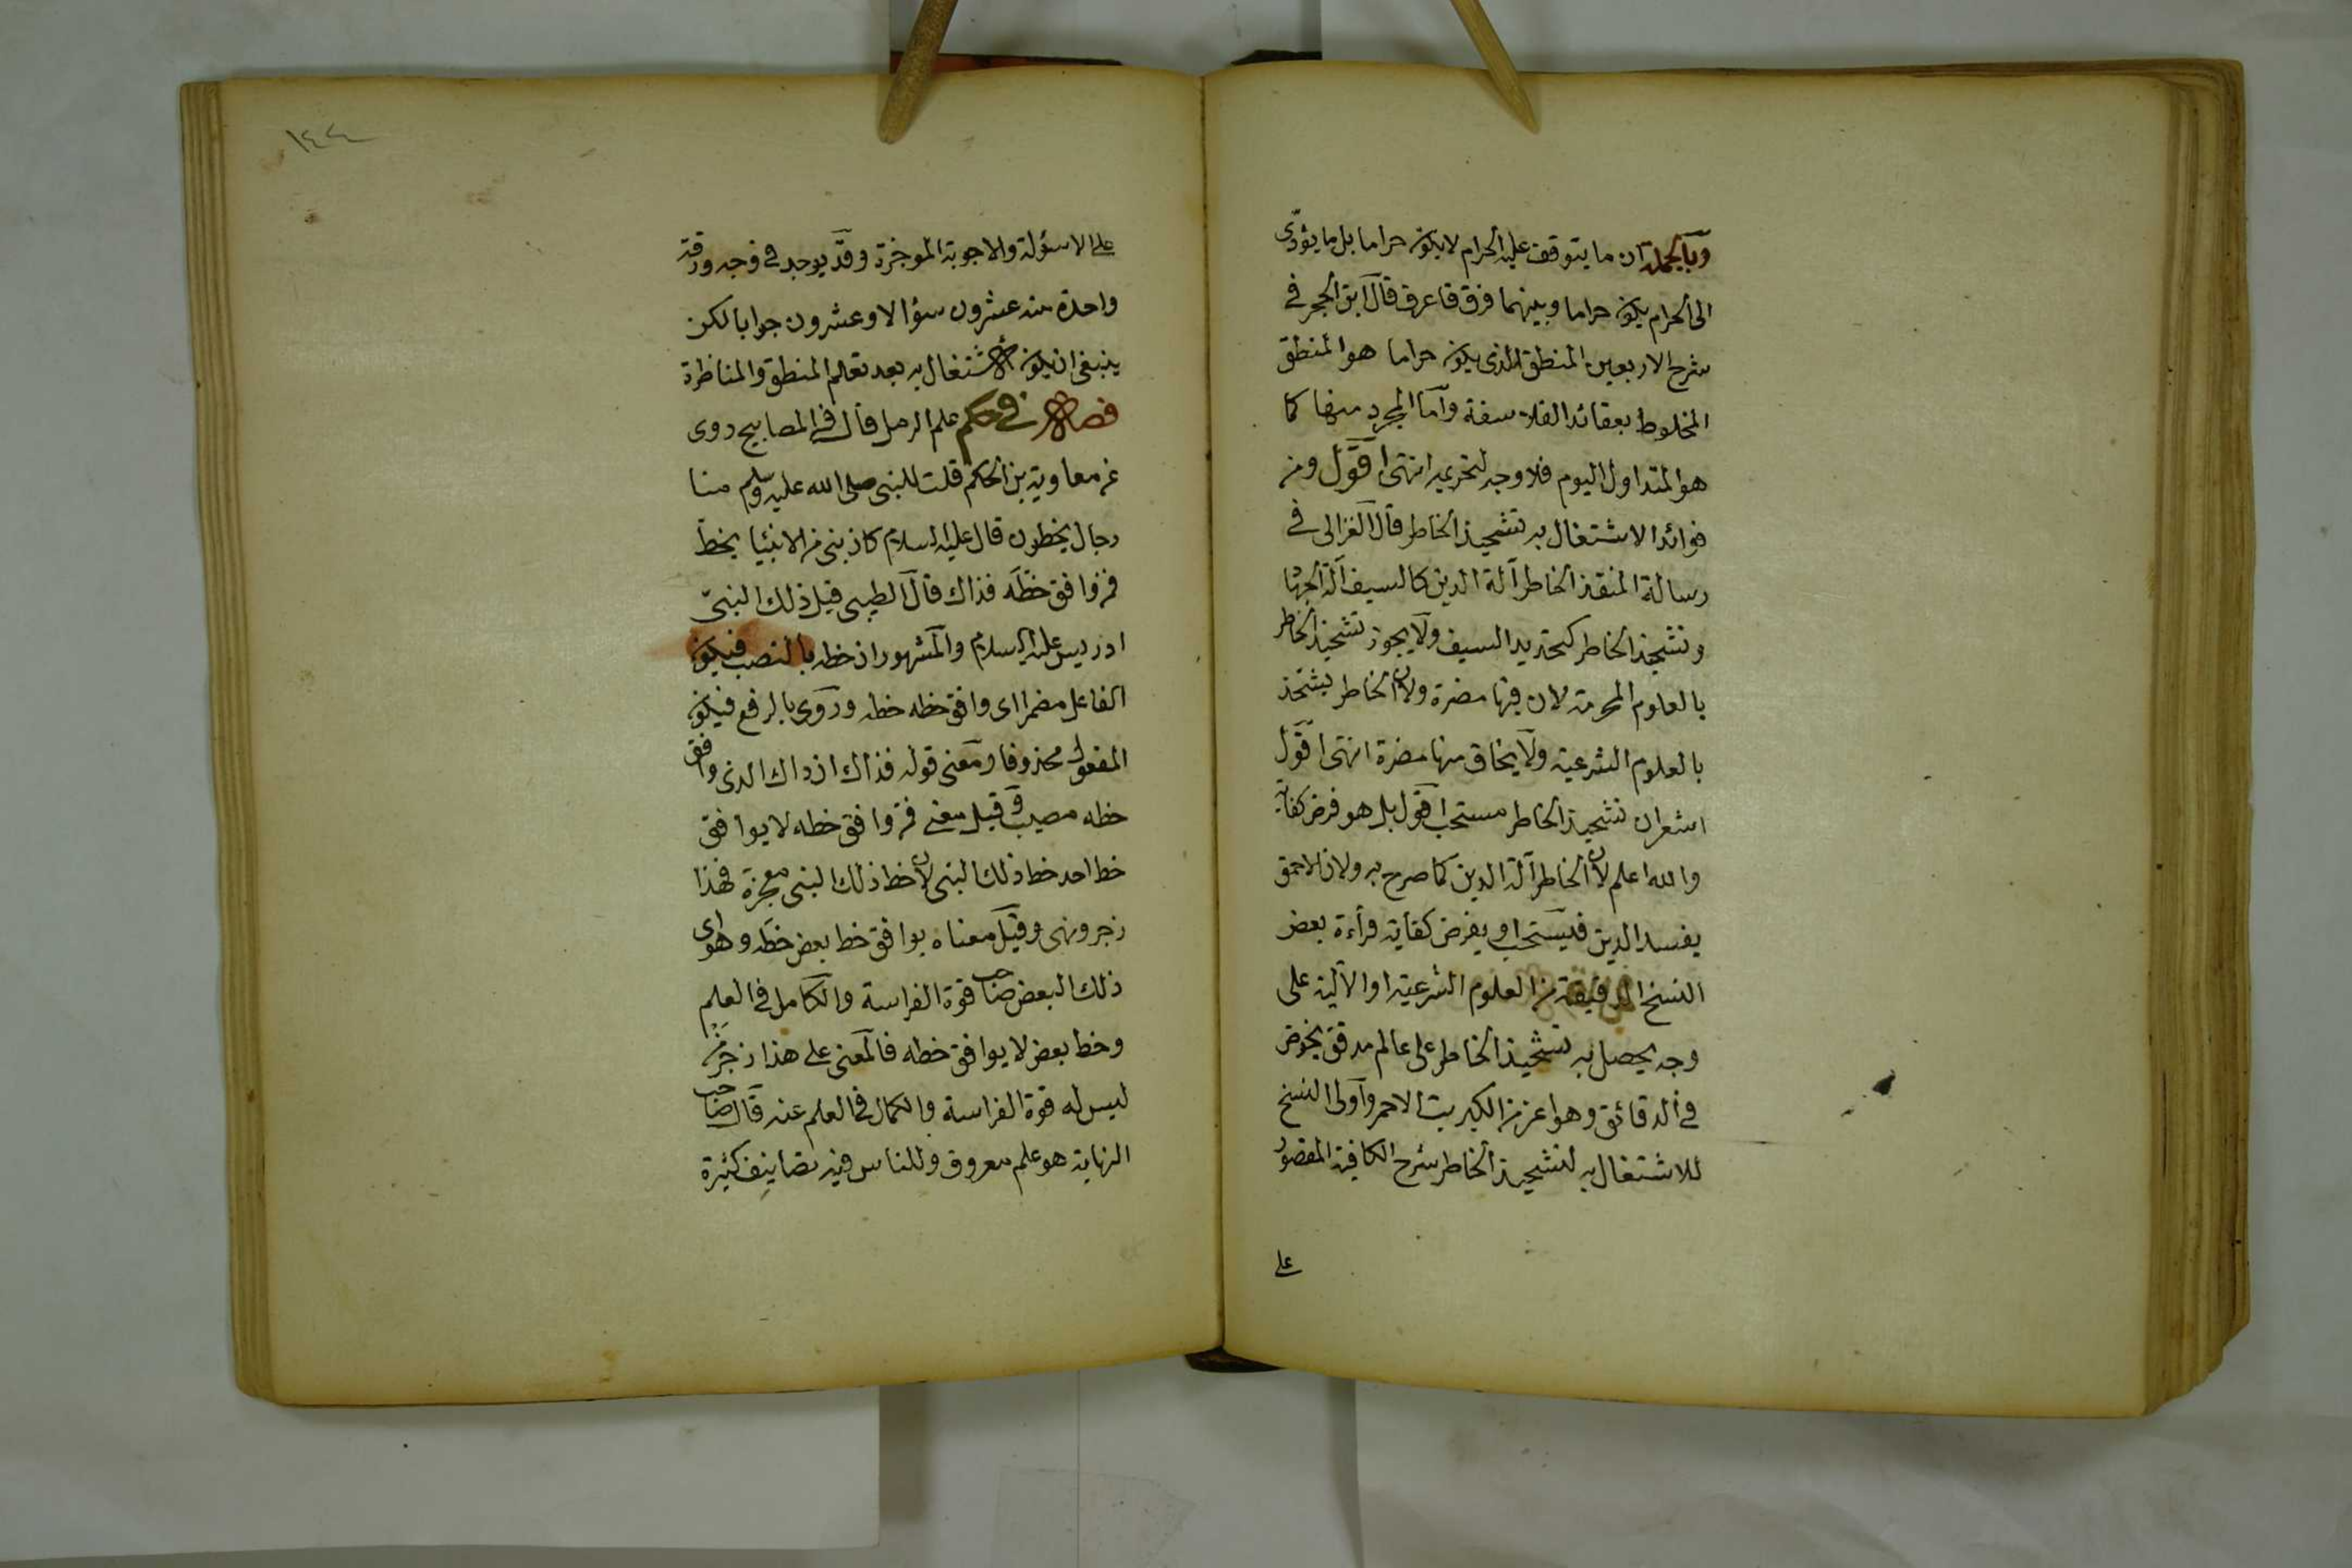 وبالجملة ان ما يتوقف عليه الحرام لا يكون حراما بل ما يؤدّى
الى الحرام يكون حراما وبينهما فرق فاعرف قال ابن الحجر فى
شرح الاربعين المنطق الذى يكون حراما هو المنطق
المخلوط بعقائد الفلاسفة وأما المجرد منها كما
هو المتداول اليوم فلا وجه لتحريمه انتهى اقول ومن
فوائد الاشتغال به تشحيذ الخاطر قال الغزالى فى
رسالة المنقذ الخاطر آلة الدين كالسيف آلة الجهاد
وتشحيذ الخاطر كتحديد السيف ولا يجوز تشحيذ الخاطر
بالعلوم المحرمة لان فيها مضرة ولان الخاطر يشتحذ
بالعلوم الشرعية ولا يخاف منها مضرة انتهى اقول
اشعر ان تشحيذ الخاطر مستحب اقول بل هو فرض كفاية
والله اعلم لان الخاطر آلة الدين كما صرح به ولان الاحمق
يفسد الدين فيستحب او يفرض كفاية قرأءة بعض
النسخ الدقيقة من العلوم الشرعية او الآلية على
وجه يحصل به تشحيذ الخاطر على عالم مدقق يخوض
فى الدقائق وهو اعز من الكبريت الاحمر وأولى النسخ
للاشتغال به لتشحيذ الخاطر شرح الكافية المقصور
على
١٤٤
على الاسئولة والاجوبة الموخرة وقد يوجد فى وجه ورقة
واحدة منه عشرون سؤالا وعشرون جوابا لكن
ينبغى ان يكون الاشتغال به بعد تعلم المنطق والمناظرة
فصل فى حكم علم الرمل قال فى المصابيح روى
عن معاوية بن الحكم قلت للنبى صلى الله عليه وسلم منا
رجال يخطون قال عليه السلام كان نبى من الانبيا يخطّ
فمن وافق خطّه فذاك قال الطيبى قيل ذلك النبىّ
ادريس عليه السلام والمشهور ان خطه بالنصب فيكون
الفاعل مضمرا اى وافق خطه خطه وروى بالرفع فيكون
المفعول محذوفا ومعنى قوله فذاك ان ذاك الذى وافق
خطه مصيب وقيل معنى فمن وافق خطه لا يوافق
خط احد خط ذلك النبى لان خط ذلك النبى معجزة فهذا
زجر ونهى وقيل معناه يوافق خط بعض خطه وهو اى
ذلك البعض صاحب قوة الفراسة والكامل فى العلم
وخط بعض لا يوافق خطه فالمعنى على هذا زجر من
ليس له قوة الفراسة والكمال فى العلم عنه قال صاحب
النهاية هو علم معروف وللناس فيه تصانيف كثيرة